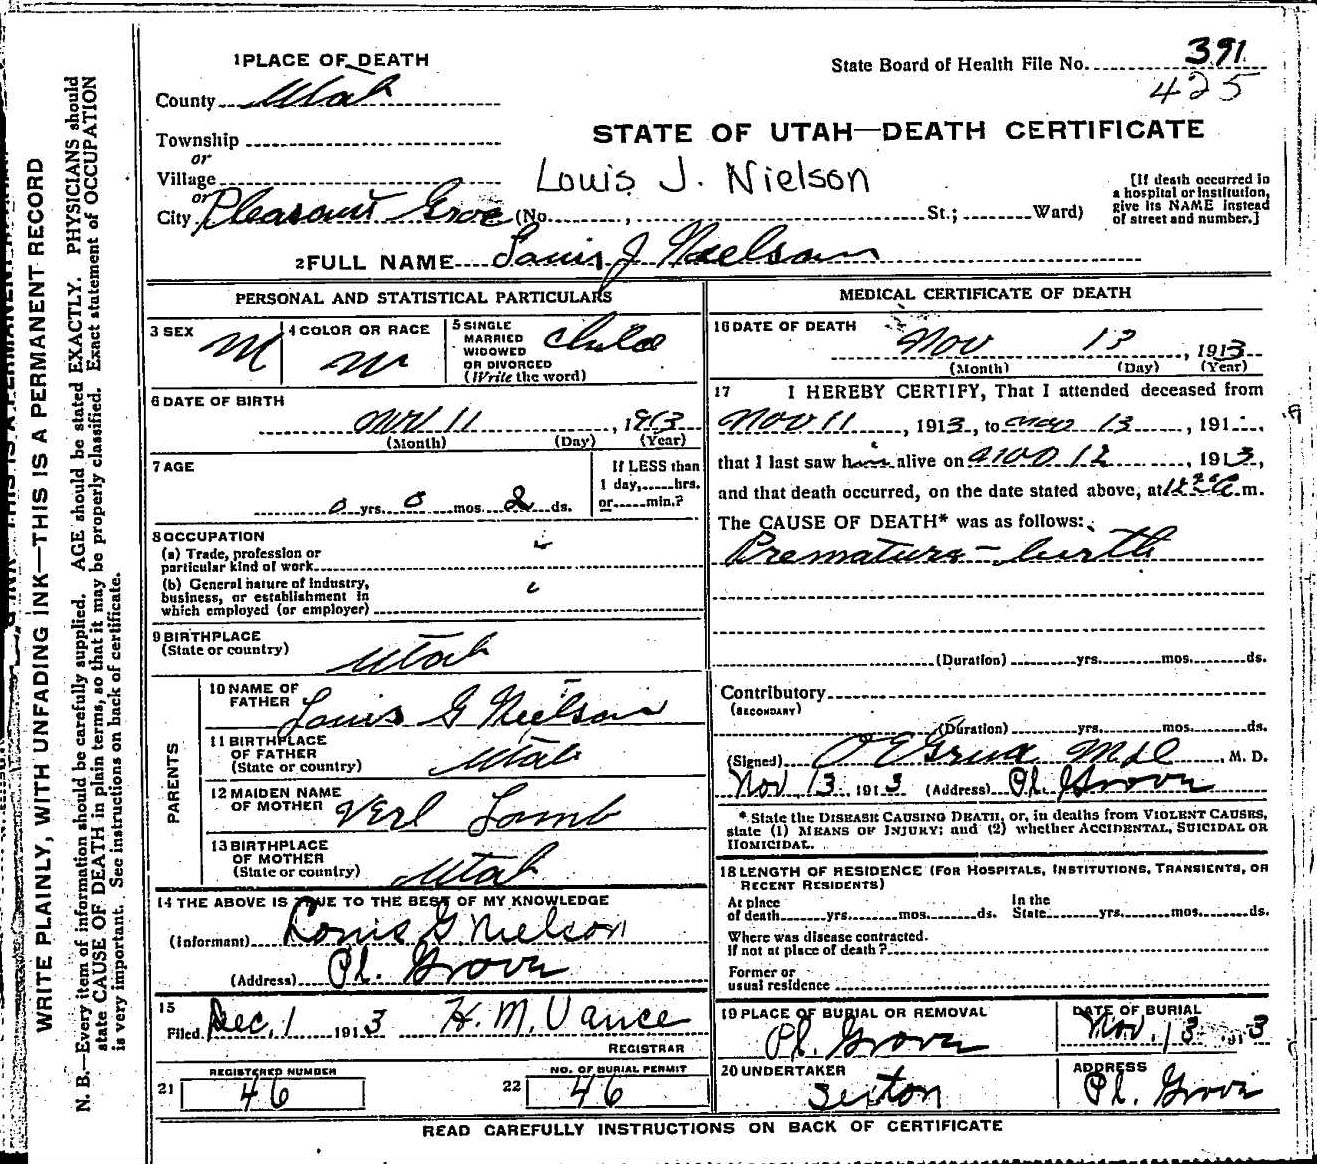 1 PLACE OF DEATH
County Utah
Township
or
Village
or
City Pleasant Grove (No. , St.; Ward)
State Board of Health File No. 391
425
STATE OF UTAH—DEATH CERTIFICATE
Louis J. Nielson
[If death occurred in
a hospital or institution,
give its NAME instead
of street and number.]
2 FULL NAME Louis J Nielson
PERSONAL AND STATISTICAL PARTICULARS
3 SEX M
4 COLOR OR RACE W
5 SINGLE
MARRIED
WIDOWED
OR DIVORCED
(Write the word)
Child
6 DATE OF BIRTH
Nov 11, 1913
(Month) (Day) (Year)
7 AGE
0 yrs. 0 mos. 2 ds.
If LESS than
1 day,......hrs.
or......min.?
8 OCCUPATION
(a) Trade, profession or
particular kind of work
(b) General nature of industry,
business, or establishment in
which employed (or employer)
9 BIRTHPLACE
(State or country) Utah
PARENTS
10 NAME OF
FATHER Louis G Nielson
11 BIRTHPLACE
OF FATHER
(State or country) Utah
12 MAIDEN NAME
OF MOTHER Verl Lamb
13 BIRTHPLACE
OF MOTHER
(State or country) Utah
14 THE ABOVE IS TRUE TO THE BEST OF MY KNOWLEDGE
(Informant) Louis G Nielson
(Address) Pl. Grove
15
Filed Dec. 1 1913 H. M. Vance
REGISTRAR
REGISTERED NUMBER
21 46
NO. OF BURIAL PERMIT
22 46
MEDICAL CERTIFICATE OF DEATH
16 DATE OF DEATH
Nov 13, 1913
(Month) (Day) (Year)
17 I HEREBY CERTIFY, That I attended deceased from
Nov 11, 1913, to Nov 13, 191
that I last saw him alive on Nov 12, 1913,
and that death occurred, on the date stated above, at m.
The CAUSE OF DEATH* was as follows:
Premature-birth
(Duration) yrs. mos. ds.
Contributory
(SECONDARY)
(Duration) yrs. mos. ds.
(Signed) O E Grua M.D., M. D.
Nov 13 1913 (Address) Pl. Grove
* State the DISEASE CAUSING DEATH, or, in deaths from VIOLENT CAUSES,
state (1) MEANS OF INJURY; and (2) whether ACCIDENTAL, SUICIDAL OR
HOMICIDAL.
18 LENGTH OF RESIDENCE (FOR HOSPITALS, INSTITUTIONS, TRANSIENTS, OR
RECENT RESIDENTS)
At place
of death yrs. mos. ds.
In the
State yrs. mos. ds.
Where was disease contracted.
if not at place of death?
Former or
usual residence
19 PLACE OF BURIAL OR REMOVAL
Pl. Grove
DATE OF BURIAL
Nov. 13 1913
20 UNDERTAKER
Sexton
ADDRESS
Pl. Grove
READ CAREFULLY INSTRUCTIONS ON BACK OF CERTIFICATE
WRITE PLAINLY, WITH UNFADING INK—THIS IS A PERMANENT RECORD
N. B.—Every item of information should be carefully supplied. AGE should be stated EXACTLY. PHYSICIANS should
state CAUSE OF DEATH in plain terms, so that it may be properly classified. Exact statement of OCCUPATION
is very important. See instructions on back of certificate.